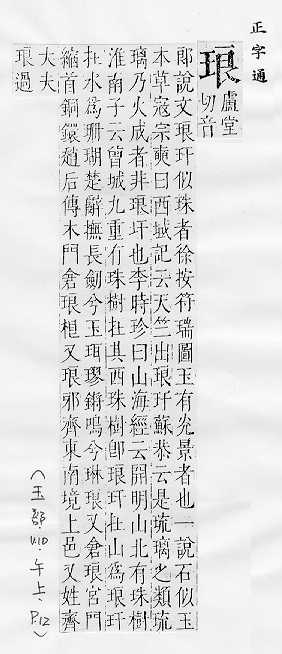 正字通
琅
盧堂
切音
郎說文琅玕似珠者徐按符瑞圖玉有光景者也一說石似玉
本草寇宗奭曰西域記云天竺出琅玕蘇恭云是琉璃之類琉
璃乃火成者非琅玕也李時珍曰山海經云開明山北有珠樹
淮南子云曾城九重有珠樹在其西珠樹卽琅玕在山爲琅玕
在水爲珊瑚楚辭撫長劍兮玉珥璆鏘鳴兮琳琅又倉琅宮門
縮首銅鐶趙后傳木門倉琅根又琅邪齊東南境上邑又姓齊
大夫琅過
(玉部.V10.午上.P.12)